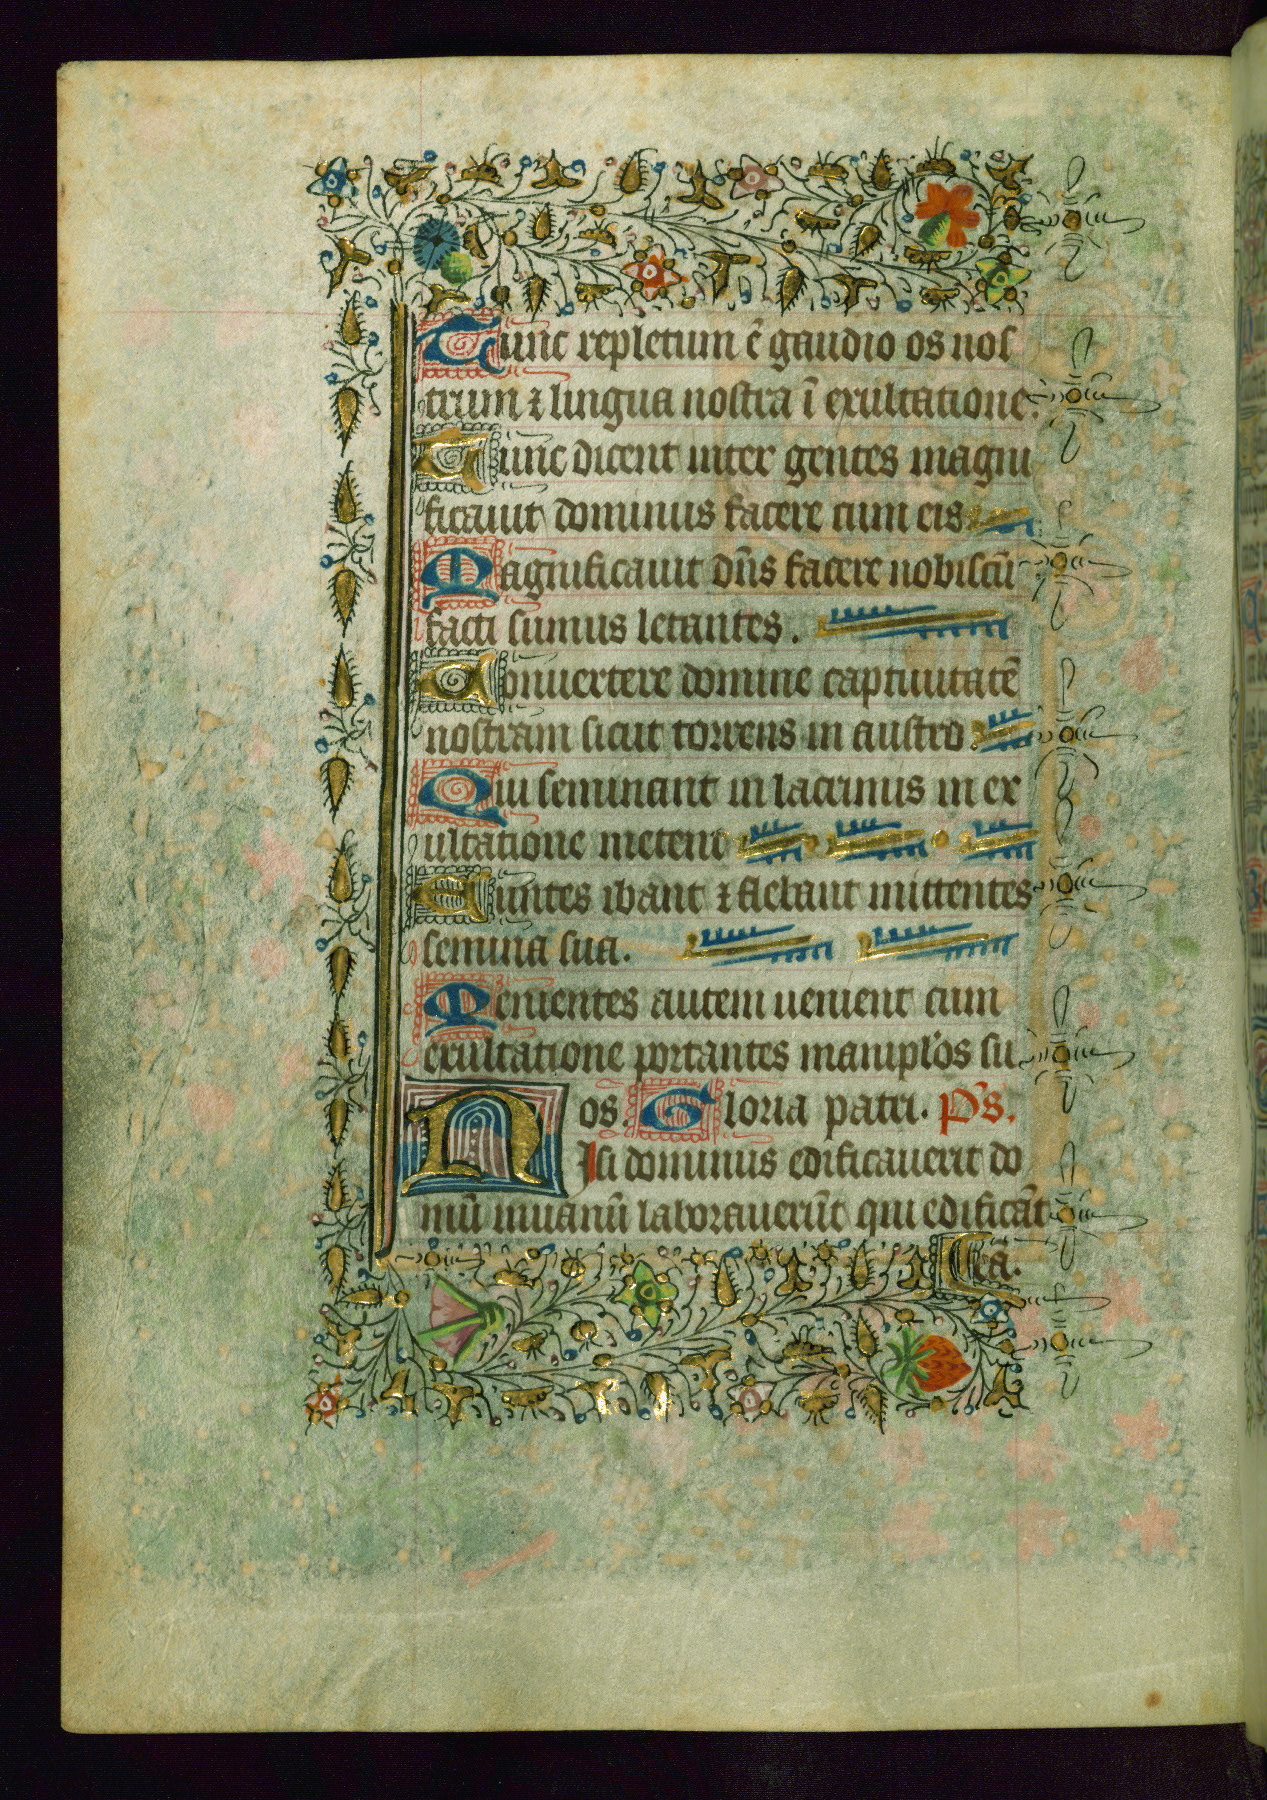 Tunc repletum ē gaudio os nos
trum ⁊ lingua nostra ī exultatione.
Tunc dicent inter gentes magni
ficauit dominus facere cum eis
Magnificauit dn̄s facere nobiscū
facti sumus letantes.
Conuertere domine captiuitatē
nostram sicut torrens in austro.
Qui seminant in lacrimis in ex
ultatione metent
Euntes ibant ⁊ flebant mittentes
semina sua.
Uenientes autem uenient cum
exultatione portantes manipl'os su
os. Gloria patri. Ps.
Nisi dominus edificauerit do
mū inuanū laborauerūt qui edificāt
eā.